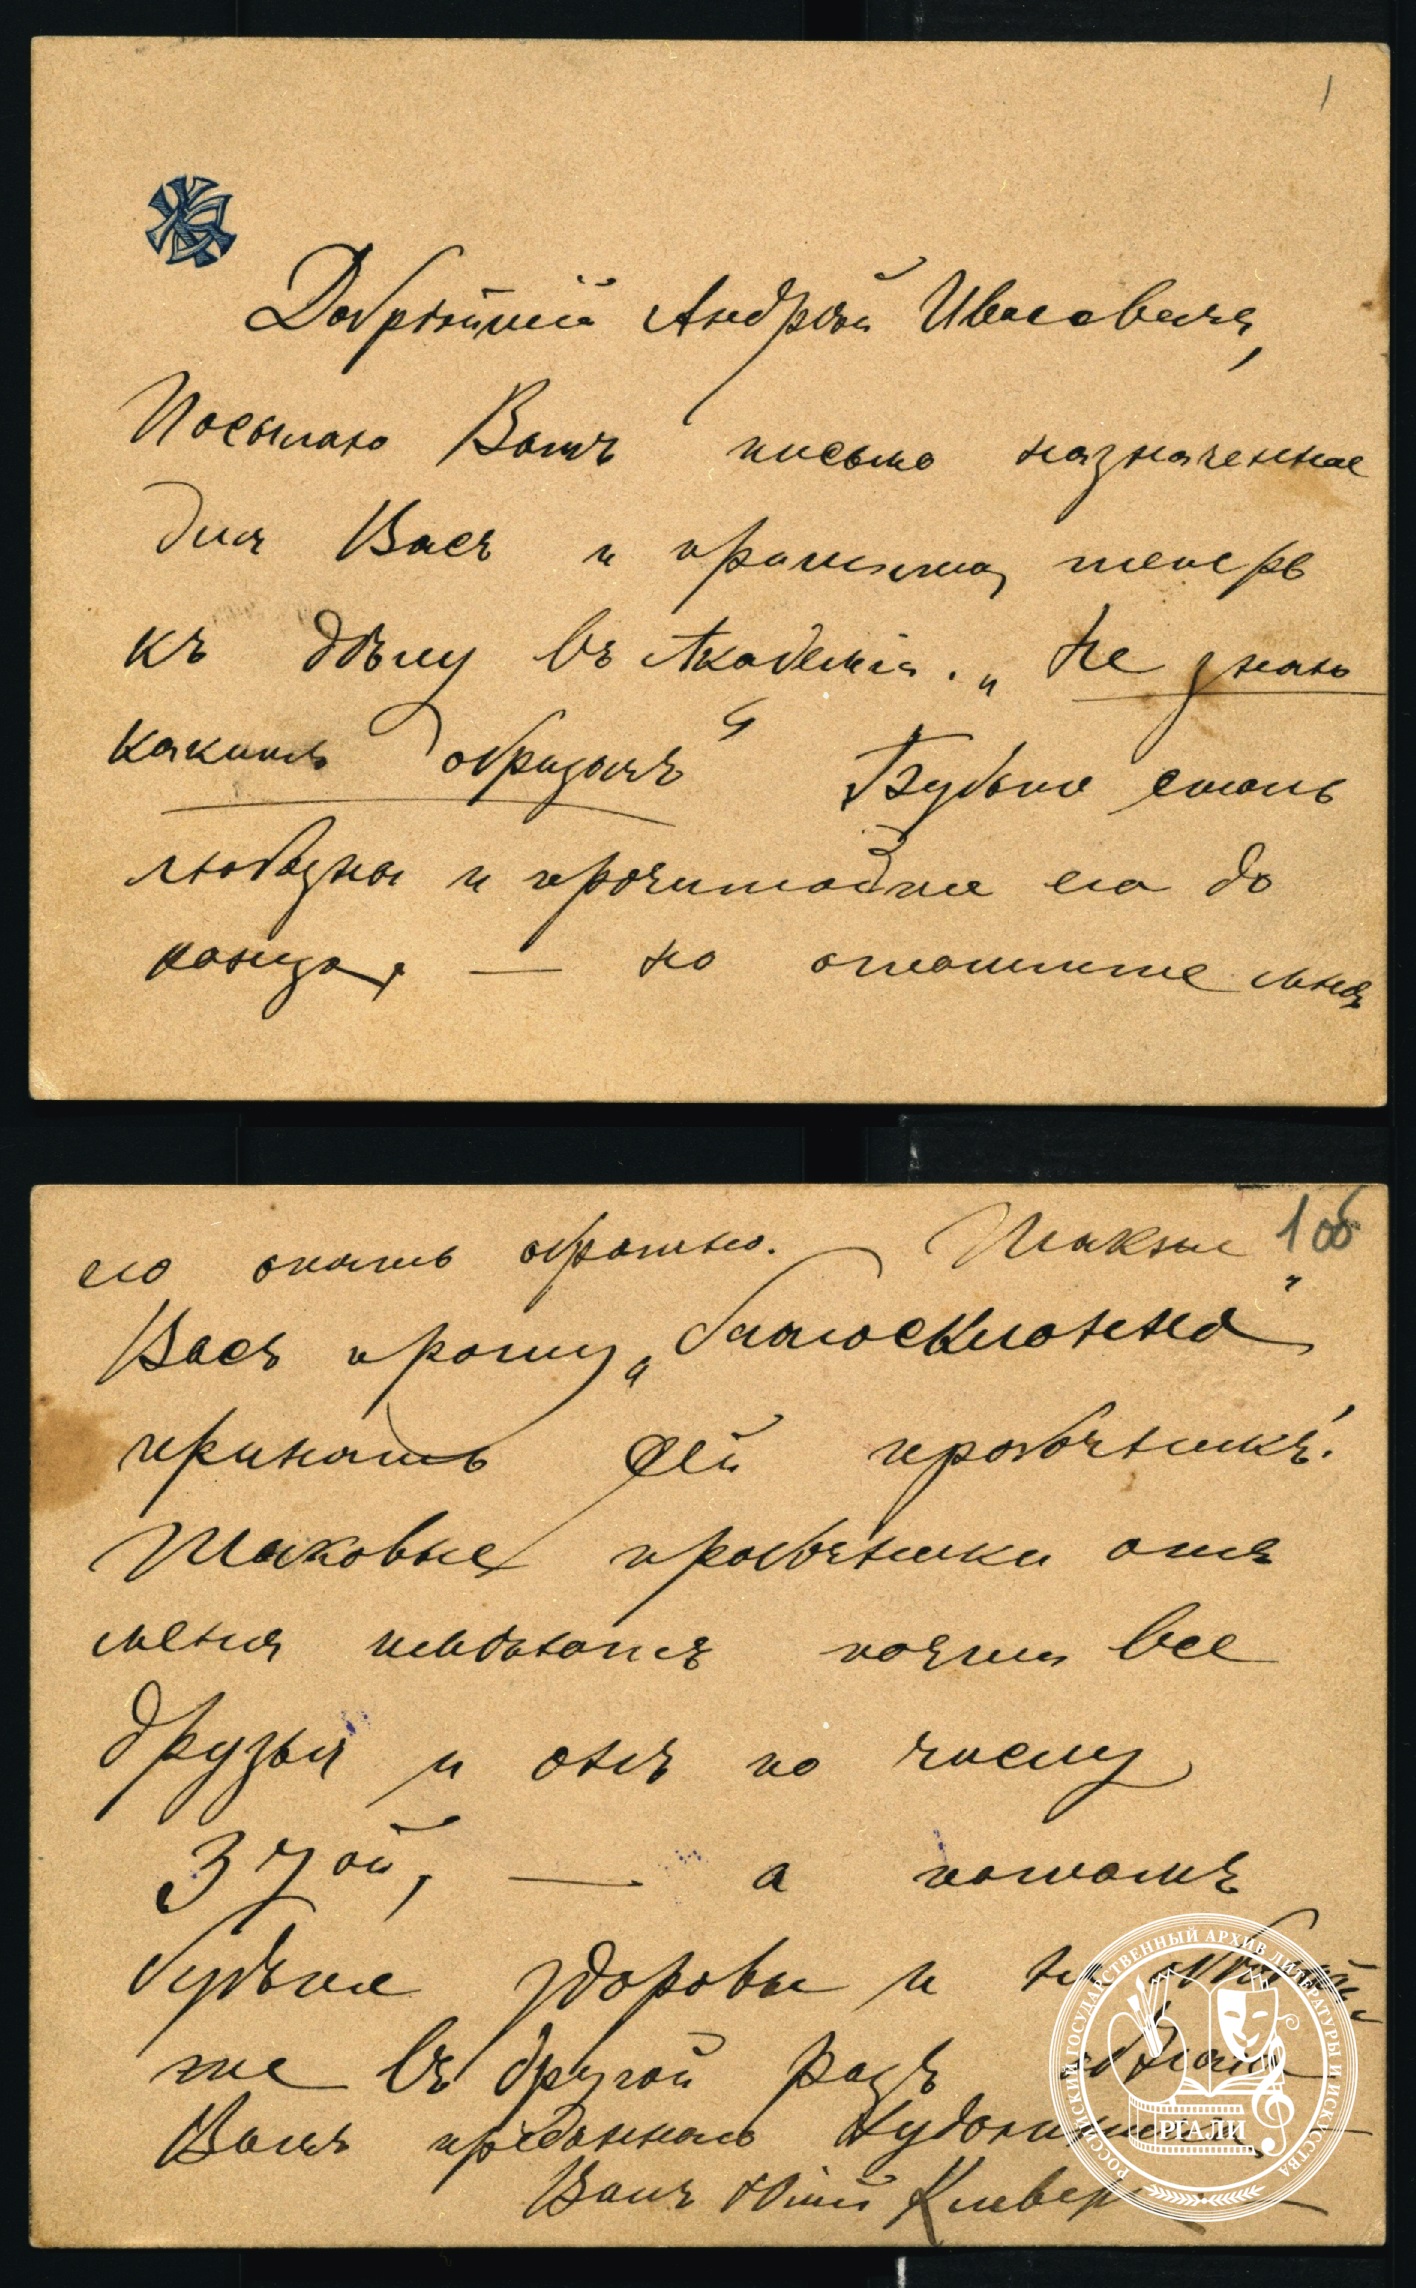 1
Добрѣйшій Андрей Ивановичъ,
Посылаю Вамъ письмо назначенное
для Васъ и пришитое теперь
къ дѣлу въ Академіи. „Не знаю
какимъ образомъ“ Будьте столь
любезны и прочитайте его до
конца, — но отошлите мнѣ
его опять обратно. Также 1об
Васъ прошу „благосклонно“
принять сей прообчникъ!
Таковые отъ
меня имѣютъ почти все
друзья и онъ по числу
37ой, — а потомъ
будьте здоровы и не
те въ другой разъ
Вамъ преданнаго Художника
Вашъ Юлій Клевер
РОССИЙСКИЙ ГОСУДАРСТВЕННЫЙ АРХИВ ЛИТЕРАТУРЫ И ИСКУССТВА
РГАЛИ